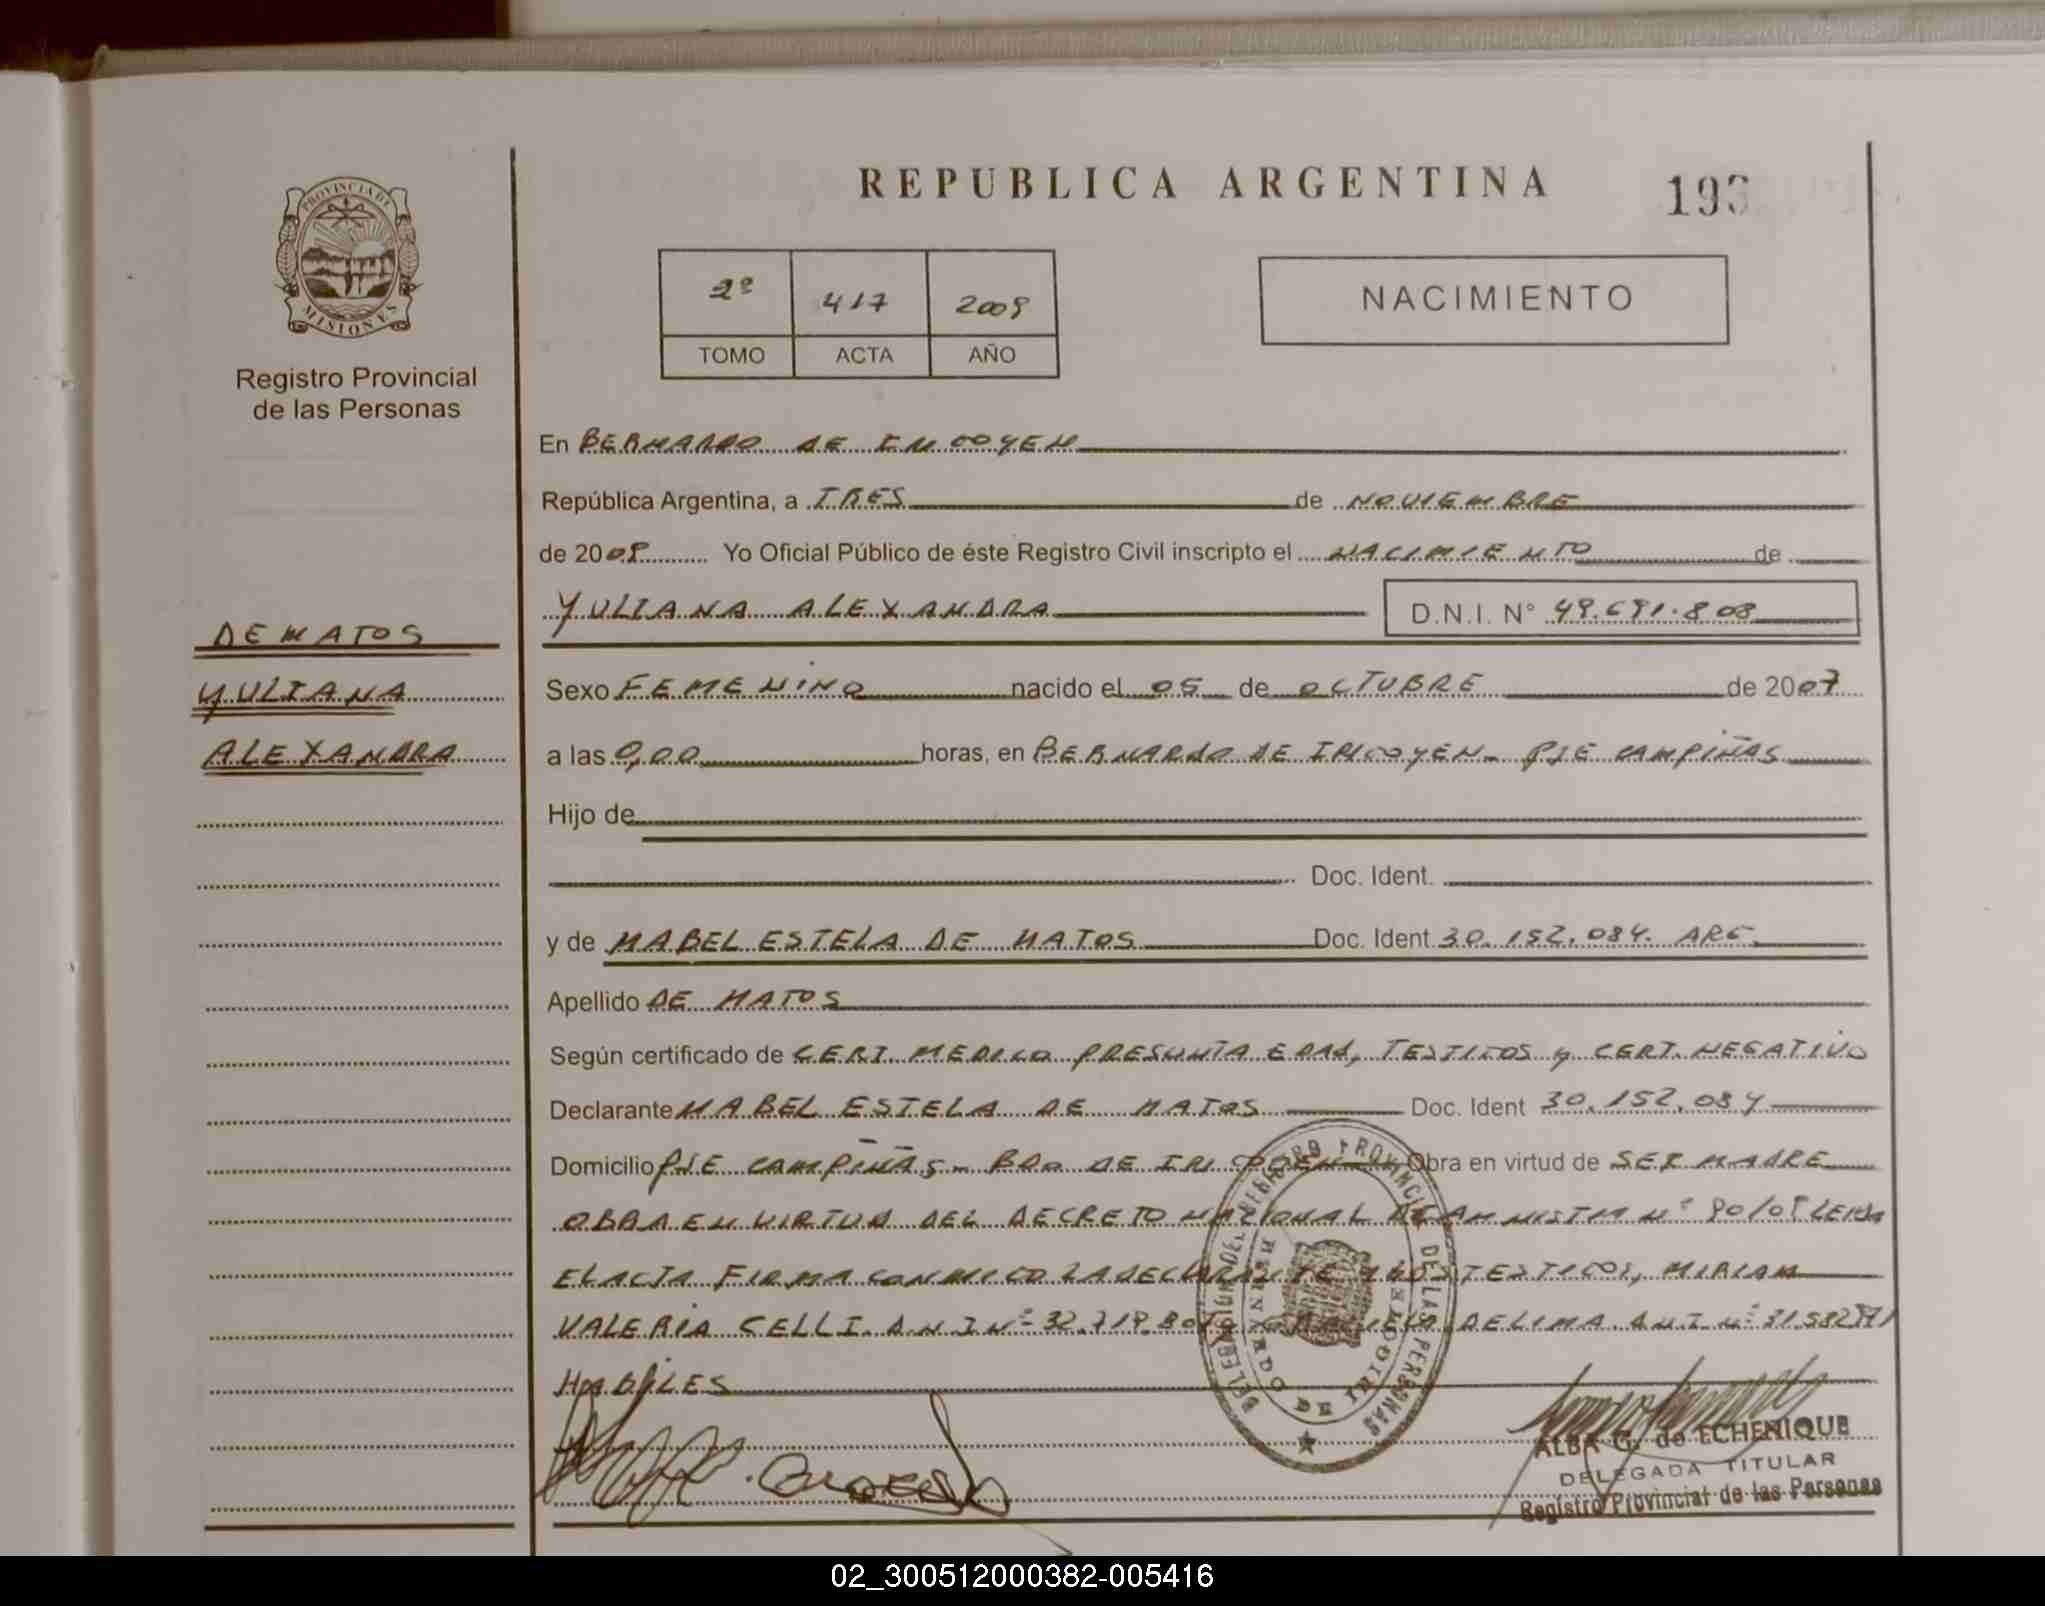 PROVINCIA DE
MISIONES
Registro Provincial
de las Personas
REPUBLICA ARGENTINA
193
2º 417 2009
TOMO ACTA AÑO
NACIMIENTO
En BERNARDO DE IRIGOYEN
República Argentina, a TRES de NOVIEMBRE
de 2009 Yo Oficial Público de éste Registro Civil inscripto el NACIMIENTO de
YULIANA ALEXANDRA D.N.I. N° 49.691.808
DE MATOS
YULIANA
ALEXANDRA
Sexo FEMENINO nacido el 05 de OCTUBRE de 2007
a las 0,00 horas, en BERNARDO DE IRIGOYEN - PJE CAMPIÑAS
Hijo de
Doc. Ident.
y de MABEL ESTELA DE MATOS Doc. Ident 30.152.084. ARG
Apellido DE MATOS
Según certificado de CERT. MEDICO PRESUNTA EDAD, TESTIGOS y CERT. NEGATIVO
Declarante MABEL ESTELA DE MATOS Doc. Ident 30.152.084
Domicilio PJE CAMPIÑAS - BDO DE IRIGOYEN Obra en virtud de SER MADRE
OBRA EN VIRTUD DEL DECRETO NACIONAL DE AMNISTIA Nº 90/09 LEIDA
EL ACTA FIRMA CONMIGO LA DECLARANTE Y LOS TESTIGOS, MIRIAM
VALERIA CELLI. D N I Nº 32.719.80 DELIMA. D.N.I Nº 31.582
HABILES
DELEGACION DEL REGISTRO PROVINCIAL DE LAS PERSONAS
BERNARDO DE IRIGOYEN
ALBA G. de ECHENIQUE
DELEGADA TITULAR
Registro Provincial de las Personas
02_300512000382-005416